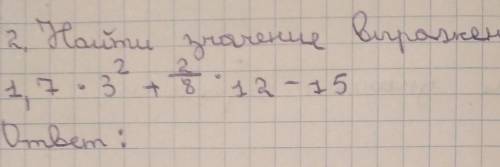 2. Найти значение выражен
1,7 · 3² + 2/8 · 12 - 15
Ответ: